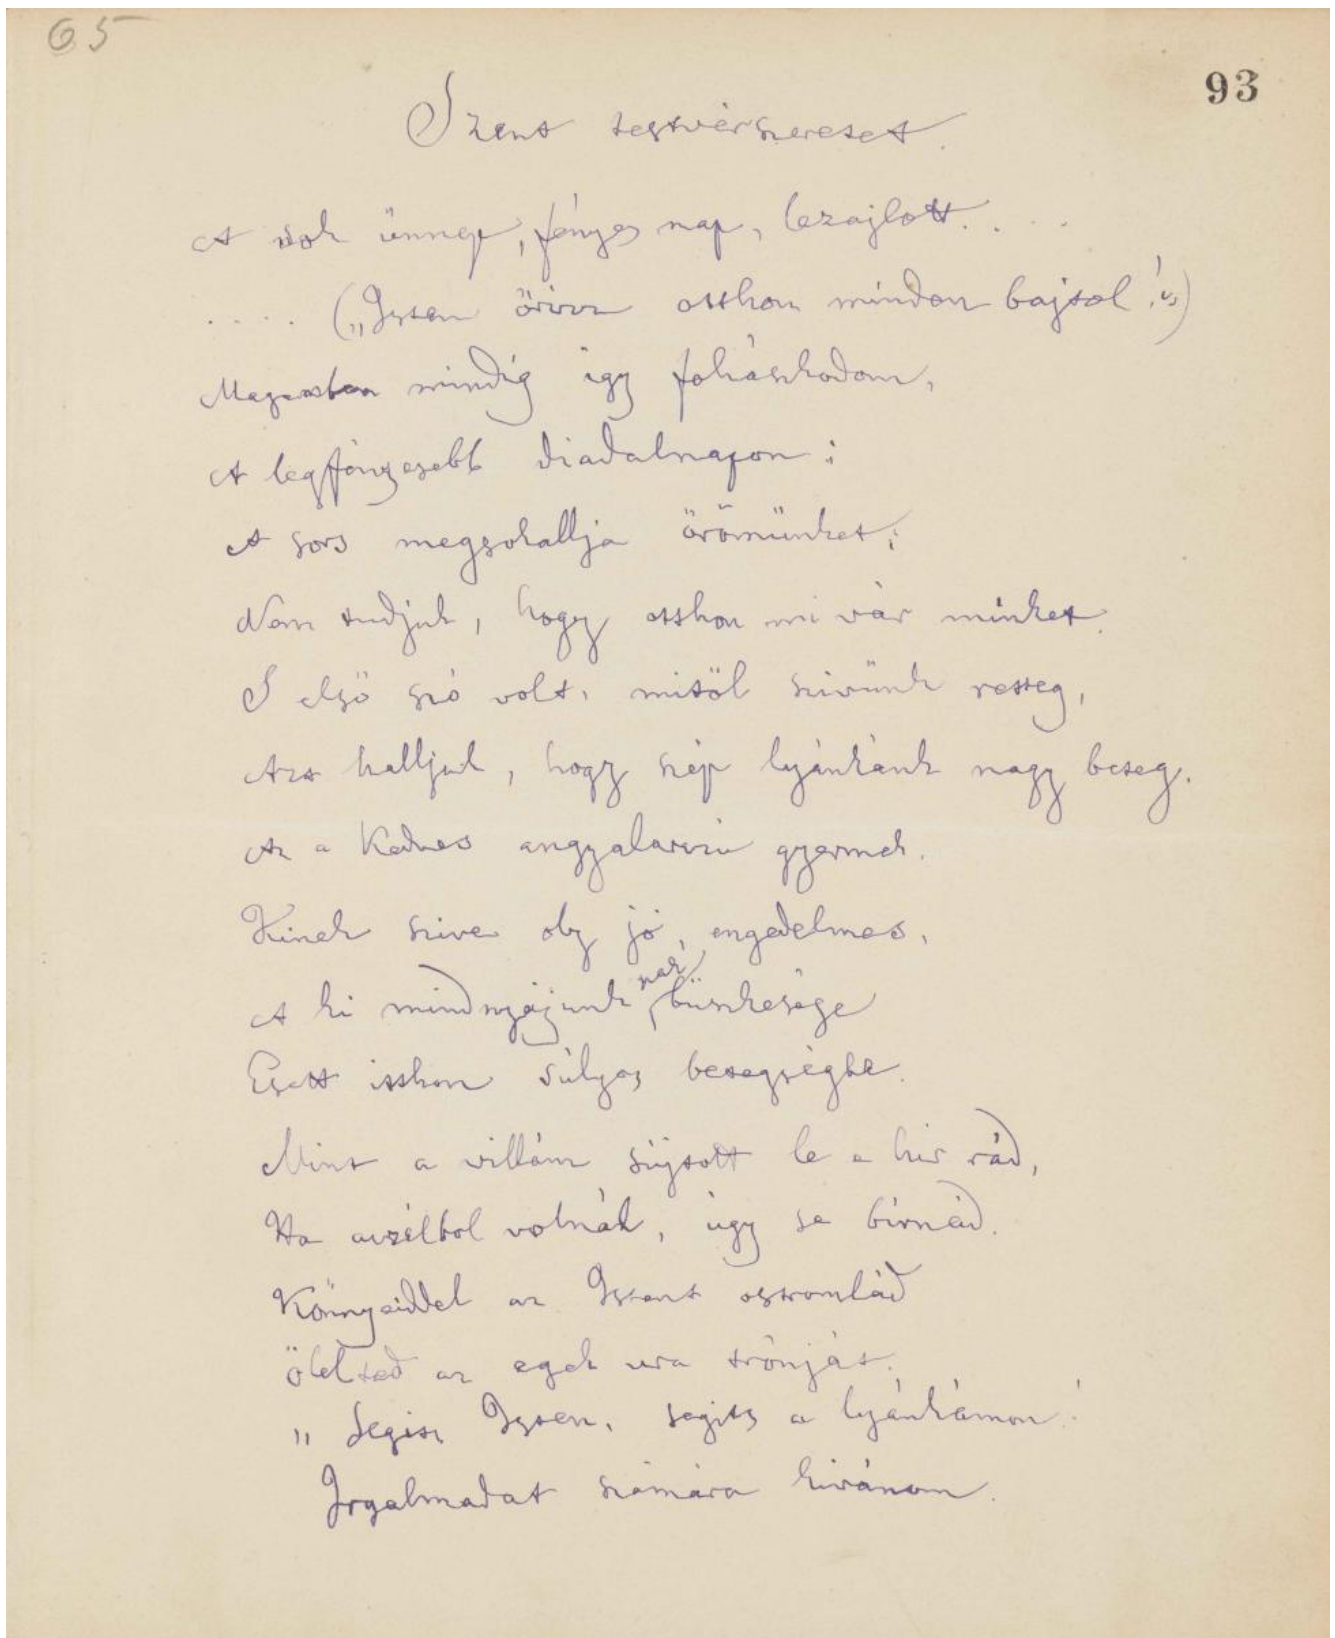 65
93
Szent testvérszeretet.
A sok ünnep, fényes nap, lezajlott. . . .
. . . . („Isten őrizz otthon minden bajtol!”)
Magamban mindíg így fohászkodom,
A legfényesebb diadalnapon:
A sors megsokallja örömünket;
Nem tudjuk, hogy otthon mi vár minket.
S első szó volt, mitöl szivünk reszteg,
Azt halljuk, hogy szép lyánkánk nagy beteg.
Az a kedves angyalarczú gyermek.
Kinek szive oly jó, engedelmes,
A ki mindnyájunknak büszkesége
Esett itthon súlyos betegségbe.
Mint a villám sújtott le a hír rád,
Ha aczélbol volnál, úgy se bírnád.
Könnyeiddel az Istent ostromlád
Öleltad az egek ura trónját.
„Segits Isten, segits a lyánkámon!
Irgalmadat számára kivánom.